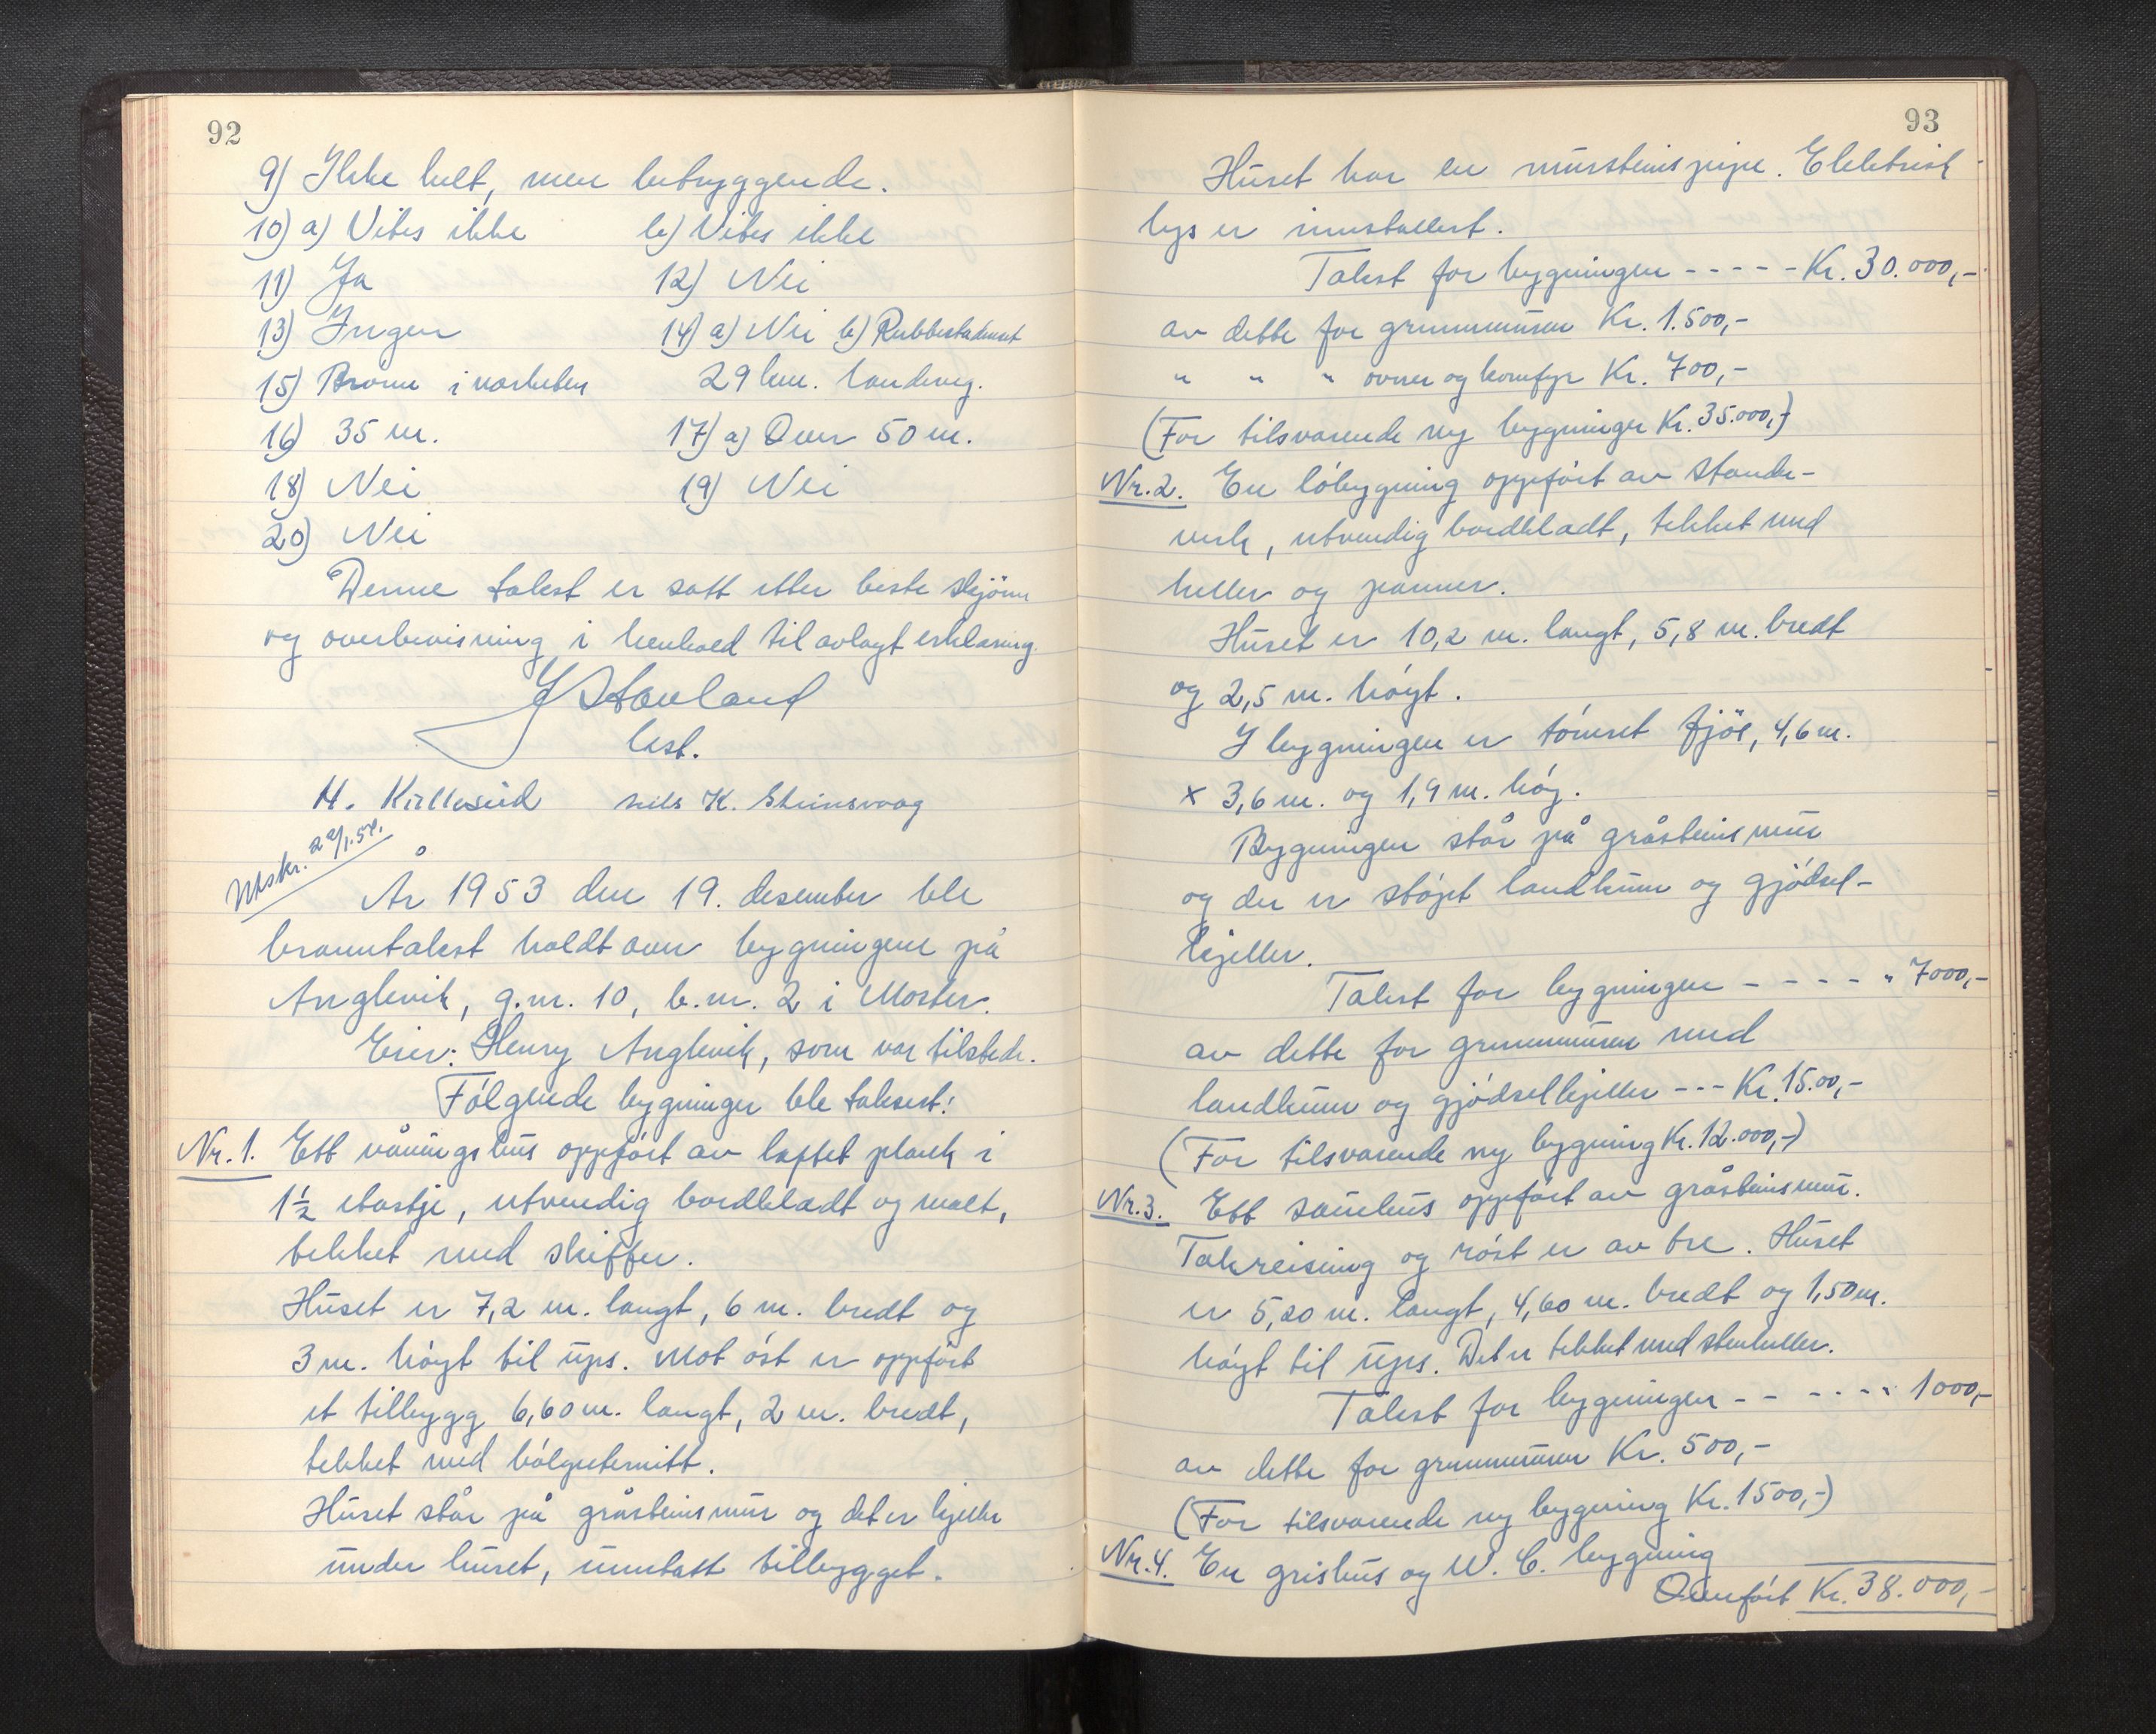 92
9) Ikke helt, men betryggende.
10) a) Vites ikke b) Vites ikke
11) Ja 12) Nei
13) Ingen 14) a) Nei b) Rubbestadneset
15) Brønn i nærheten 29 km. landeveg.
16) 35 m. 17) a) Over 50 m.
18) Nei 19) Nei
20) Nei
Denne takst er satt etter beste skjönn
og overbevisning i henhold til avlagt erklæring.
J Stavland
lest.
H. Kallesund Nils K. Steinsvaag
Utskr. 29/1.54.
År 1953 den 19. desember ble
branntakst holdt over bygningene på
Anglevik, g.nr. 10, b.nr. 2 i Moster.
Eier: Henry Anglevik, som var tilstede.
Følgende bygninger ble taksert:
Nr. 1. Ett våningshus oppført av laftet plank i
1½ etasje, utvendig bordkledt og malt,
tekket med skiffer.
Huset er 7,2 m. langt, 6 m. bredt og
3 m. høgt til ups. Mot øst er oppført
et tilbygg 6,60 m. langt, 2 m. bredt,
tekket med bølgeternitt.
Huset står på gråsteinsmur og det er kjeller
under huset, unntatt tilbygget.
93
Huset har en mursteinspipe. Elektrisk
lys er innstallert.
Takst for bygningen ----- Kr. 30.000,-
av dette for grunnmuren Kr. 1.500,-
" " " ovner og komfyr Kr. 700,-
(For tilsvarende ny bygninger Kr. 35.000,-)
Nr. 2. En löbygning oppført av stende-
verk, utvendig bordkledt, tekket med
heller og panner.
Huset er 10,2 m. langt, 5,8 m. bredt
og 2,5 m. høgt.
I bygningen er tømret fjös, 4,6 m.
x 3,6 m. og 1,9 m. høg.
Bygningen står på gråsteinsmur
og der er støpt landkum og gjødsel-
kjeller.
Takst for bygningen ---- " 7000,-
av dette for grunnmuren med
landkum og gjødselkjeller --- Kr. 15.00,-
(For tilsvarende ny bygning Kr. 12.000,-)
Nr. 3. Ett sauehus oppført av gråsteinsmur.
Takreising og røst er av tre. Huset
er 5,20 m. langt, 4,60 m. bredt og 1,50 m.
høgt til ups. Det er tekket med stenheller.
Takst for bygningen ----- " 1000,-
av dette for grunnmuren Kr. 500,-
(For tilsvarende ny bygning Kr. 1500,-)
Nr. 4. En grishus og W. C. bygning
Overført Kr. 38.000,-